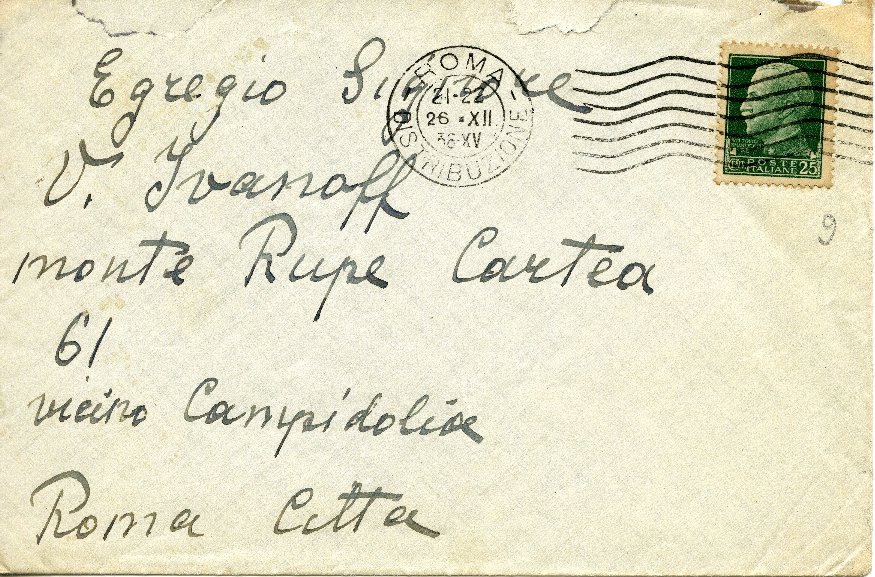 Egregio Signore
V. Ivanoff
monte Rupe Cartea
61
vicino Campidolia
Roma Citta
ROMA
21-22
26 • XII
36-XV
DISTRIBUZIONE
POSTE
ITALIANE 25
9